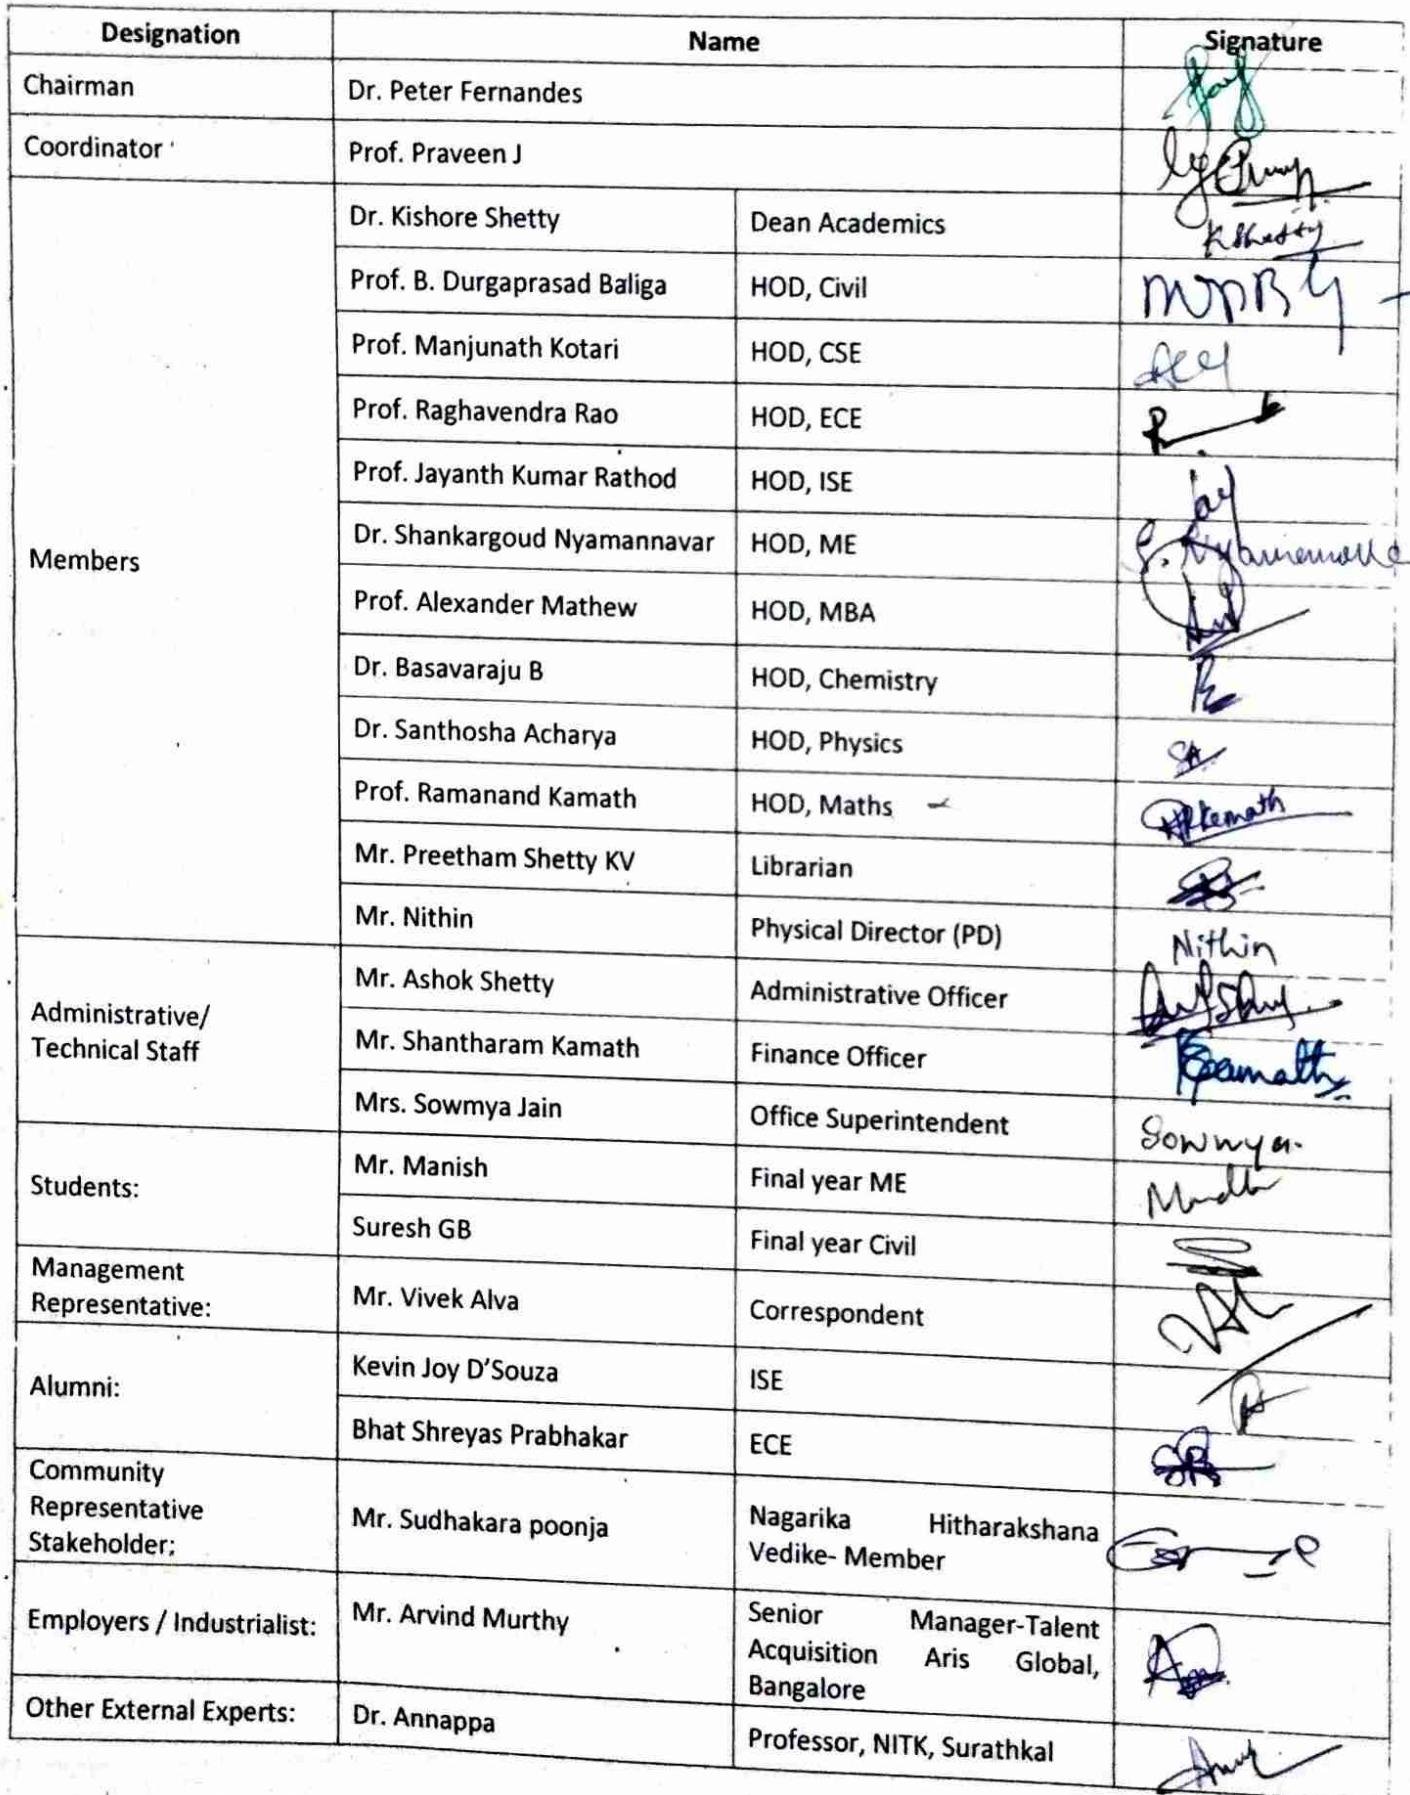 Designation Name Signature
Chairman Dr. Peter Fernandes
Coordinator Prof. Praveen J
Members
Dr. Kishore Shetty Dean Academics KShetty
Prof. B. Durgaprasad Baliga HOD, Civil
Prof. Manjunath Kotari HOD, CSE
Prof. Raghavendra Rao HOD, ECE
Prof. Jayanth Kumar Rathod HOD, ISE Jay
Dr. Shankargoud Nyamannavar HOD, ME
Prof. Alexander Mathew HOD, MBA
Dr. Basavaraju B HOD, Chemistry
Dr. Santhosha Acharya HOD, Physics SA
Prof. Ramanand Kamath HOD, Maths
Mr. Preetham Shetty KV Librarian
Mr. Nithin Physical Director (PD) Nithin
Administrative/
Technical Staff
Mr. Ashok Shetty Administrative Officer
Mr. Shantharam Kamath Finance Officer
Mrs. Sowmya Jain Office Superintendent Sowmya
Students:
Mr. Manish Final year ME
Suresh GB Final year Civil
Management
Representative:
Mr. Vivek Alva Correspondent
Alumni:
Kevin Joy D'Souza ISE
Bhat Shreyas Prabhakar ECE
Community
Representative
Stakeholder;
Mr. Sudhakara poonja
Nagarika Hitharakshana
Vedike- Member
Employers / Industrialist:
Mr. Arvind Murthy
Senior Manager-Talent
Acquisition Aris Global,
Bangalore
Other External Experts: Dr. Annappa Professor, NITK, Surathkal